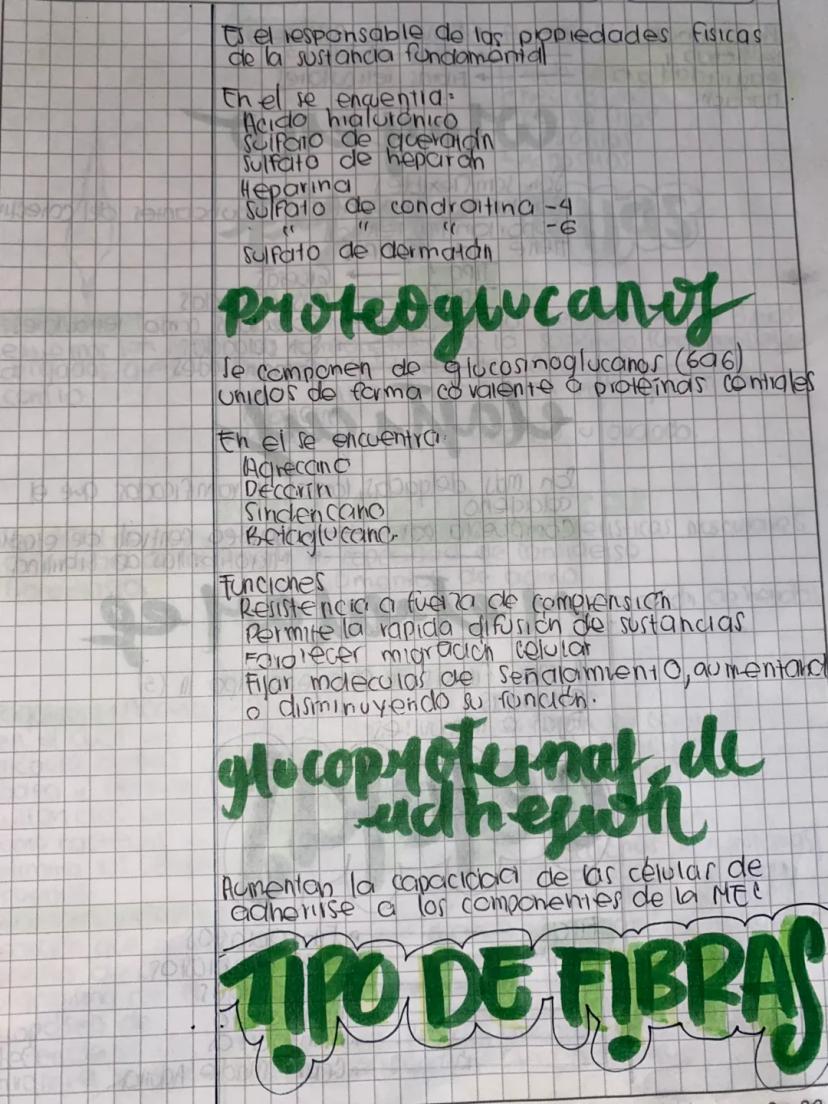 Es el responsable de las propiedades fisicas
de la sustancia fundamental
En el se encuentra:
Acido hialurónico
Sulfato de queratán
Sulfato de heparán
Heparina
Sulfato de condroitina -4
" " " -6
Sulfato de dermatán
Proteoglucanos
Se componen de glucosinoglucanos (GAG)
unidos de forma covalente a proteínas centrales
En el se encuentra:
Agrecano
Decorin
Sindencano
Betaglucano.
Funciones
Resistencia a fuerza de comprensión
Permite la rapida difusión de sustancias
Forolecer migración celular
Fijar moleculas de señalamiento, aumentand
o disminuyendo su función.
glucoproteinas de
adhesión
Aumentan la capacidad de las célular de
adherirse a los componentes de la MEC
TIPO DE FIBRAS